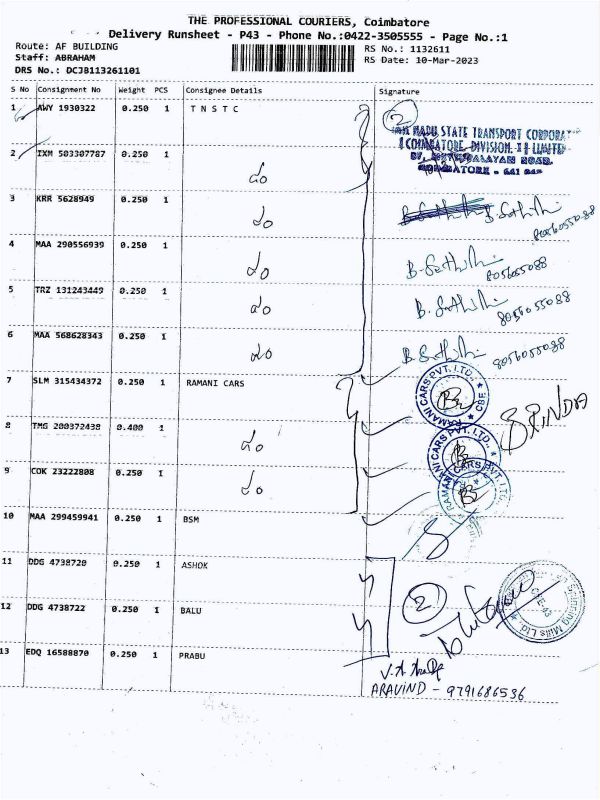 THE PROFESSIONAL COURIERS, Coimbatore
Delivery Runsheet - P43 - Phone No.:0422-3505555 - Page No.:1
Route: AF BUILDING
Staff: ABRAHAM
DRS No.: DCJB113261101
RS No.: 1132611
RS Date: 10-Mar-2023
S No Consignment No Weight PCS Consignee Details Signature
1 AWY 1930322 0.250 1 T N S T C 2
TAMIL NADU STATE TRANSPORT CORPORAT
(COIMBATORE. DIVISION. I) LIMITED
37, METTUPALAYAM ROAD,
COIMBATORE - 641 043
2 IXM 503307787 0.250 1 do
3 KRR 5628949 0.250 1 do B. Sathish 8056055088
4 MAA 290556939 0.250 1 do B. Sathish 8056055088
5 TRZ 131243449 0.250 1 do B. Sathish 8056055088
6 MAA 568628343 0.250 1 do B. Sathish 8056055088
7 SLM 315434372 0.250 1 RAMANI CARS
RAMANI CARS PVT. LTD., CBE
BRINDA
8 TMG 200372438 0.400 1 do
RAMANI CARS PVT. LTD.,
9 COK 23222808 0.250 1 do
RAMANI CARS PVT. LTD.
10 MAA 299459941 0.250 1 BSM
11 DDG 4738720 0.250 1 ASHOK
12 DDG 4738722 0.250 1 BALU 2
Spinning Mills Ltd. CBE-43
13 EDQ 16588870 0.250 1 PRABU
ARAVIND - 9791686536